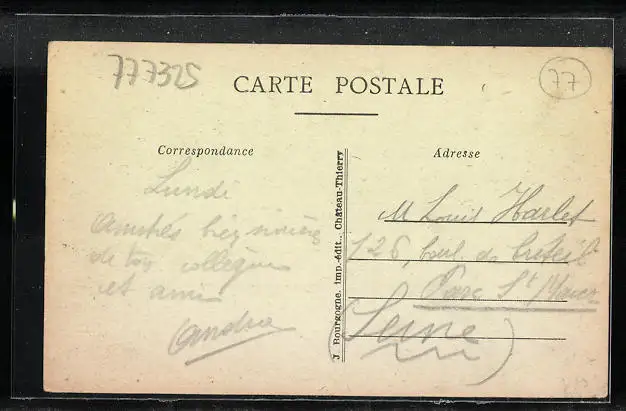 777325
77
CARTE POSTALE
Correspondance
Adresse
Lundi
Amitiés bien sincères
de ton collègue
et ami
André
J. Bourgogne, imp.-édit., Château-Thierry
M Louis Harlet
126, boul. de Creteil
Parc St Maur
(Seine)